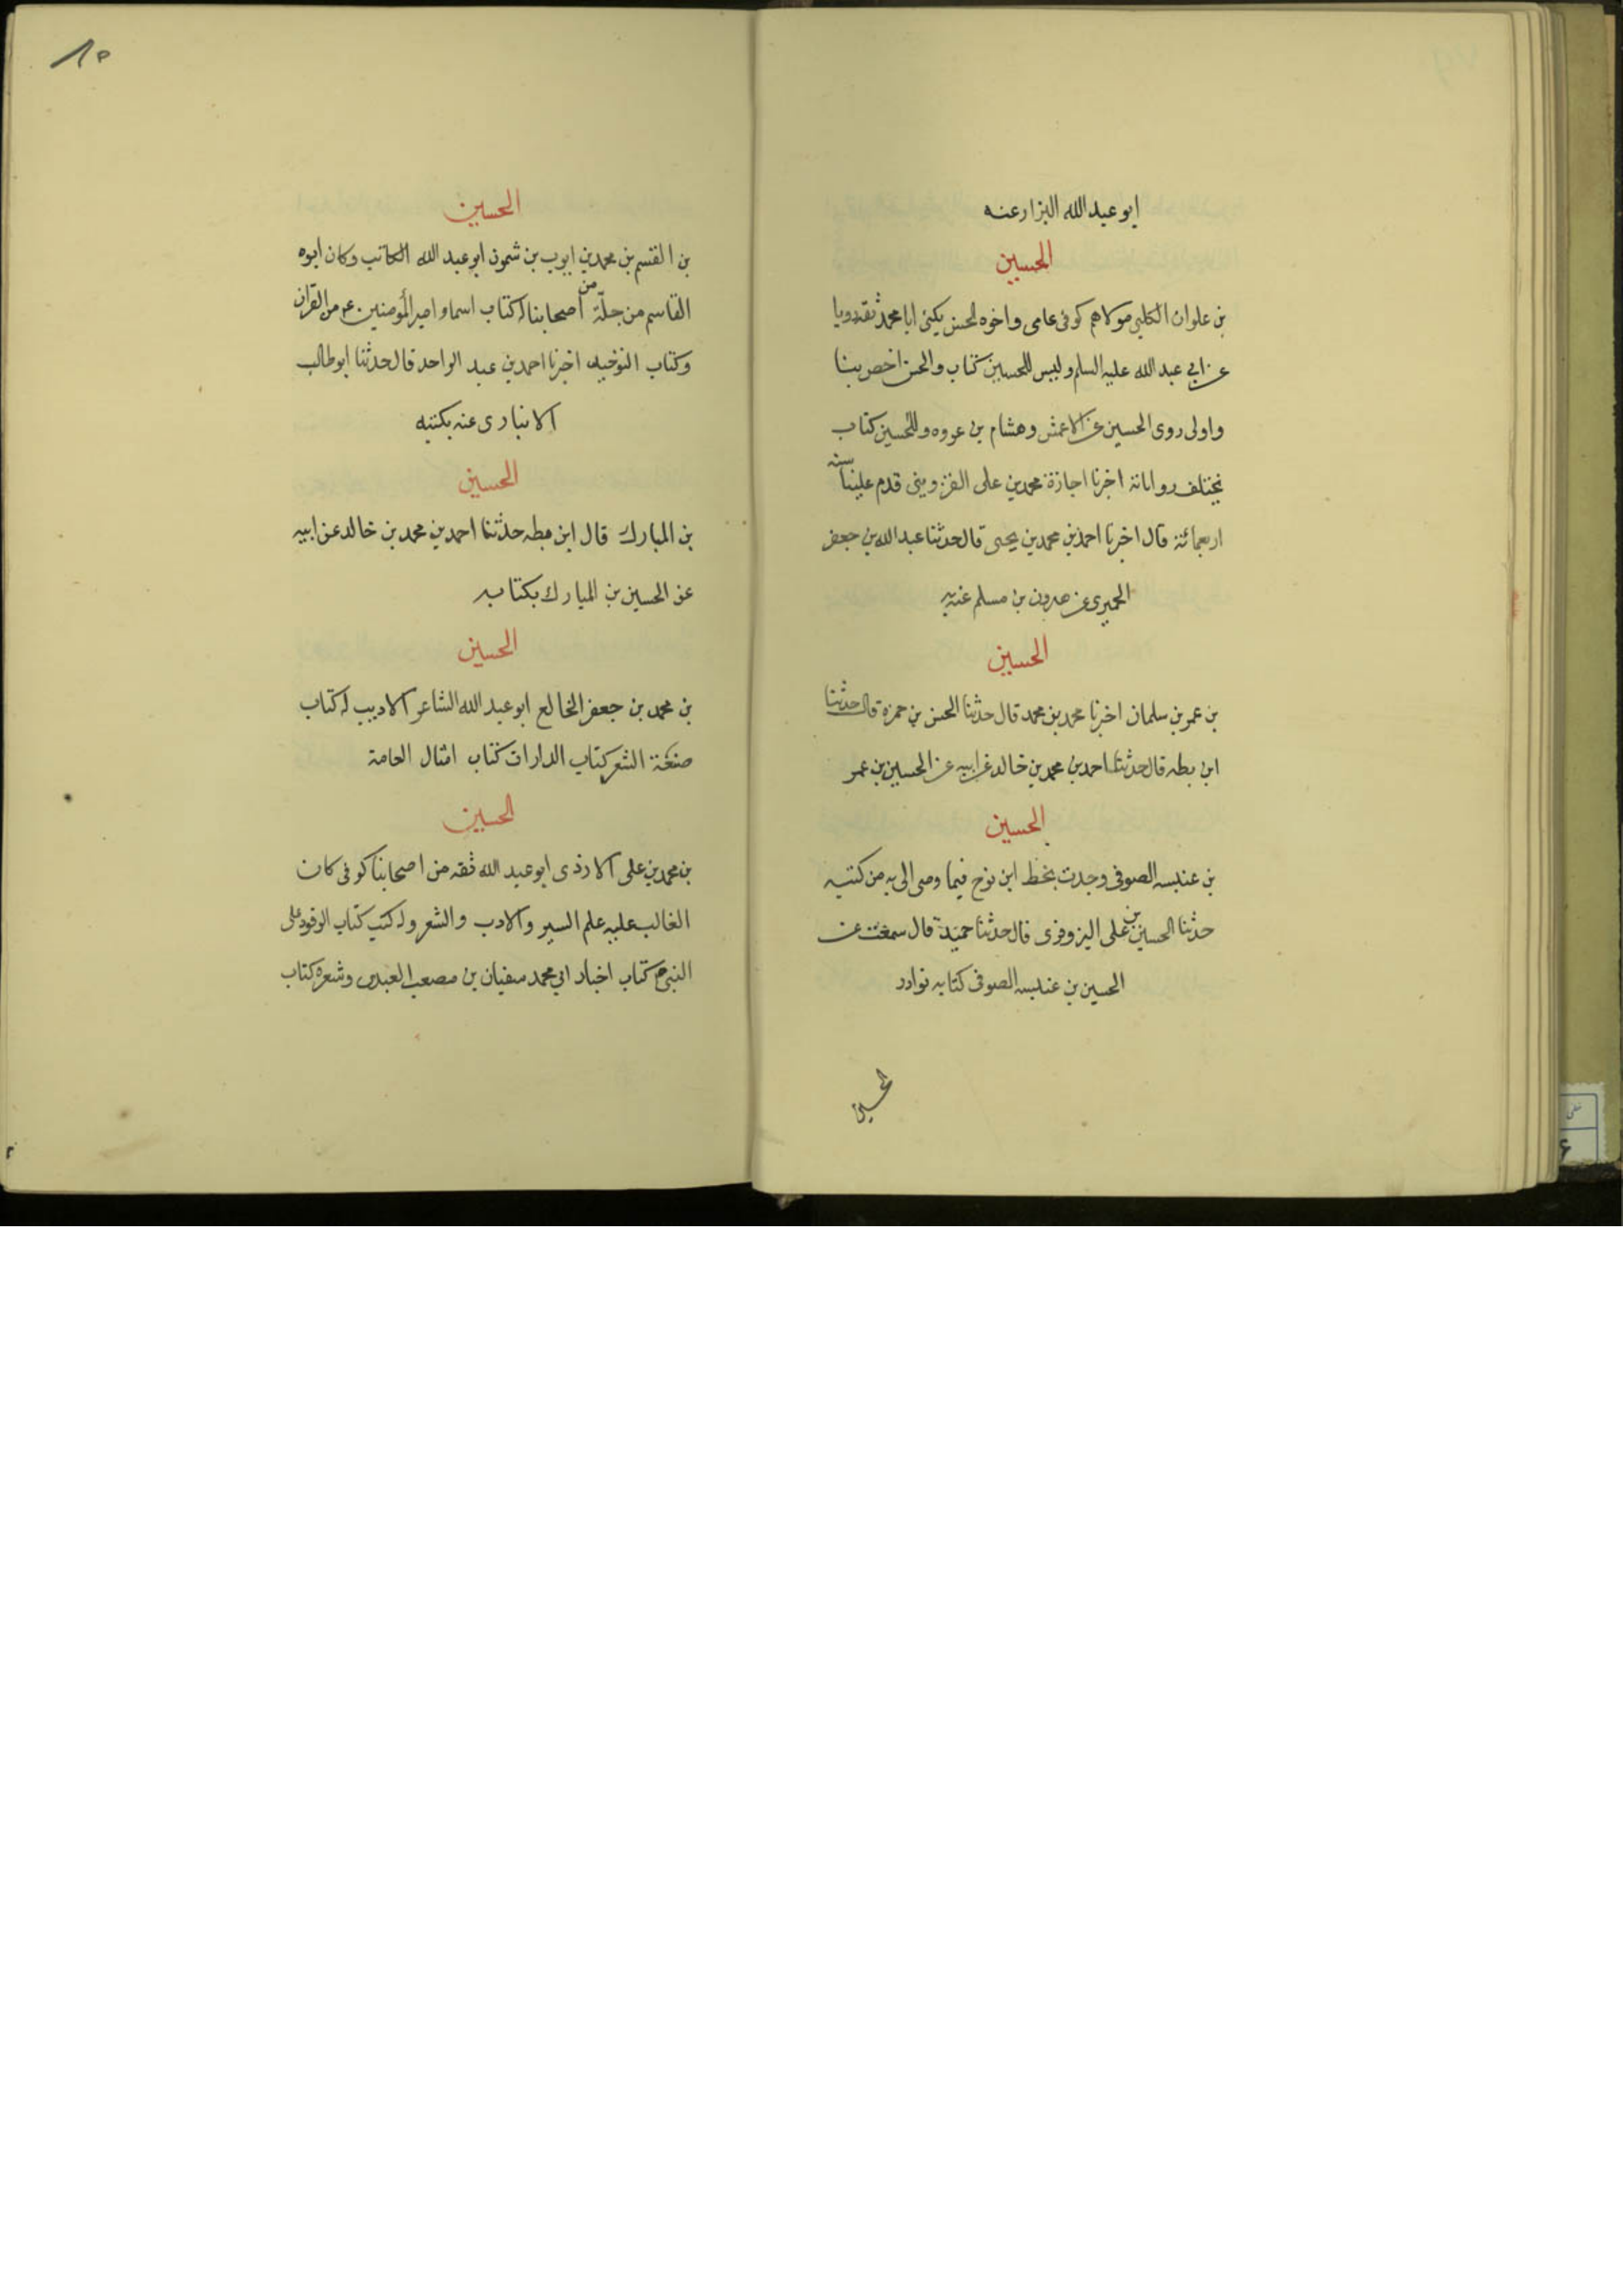 ابو عبد الله البزار عنه
الحسين
بن علوان الكلبي مولاهم كوفى عامى واخوه الحسن يكنى ابا محمد ثقة رويا
عن ابي عبد الله عليه السلم وليس للحسين كتاب والحسن اخص بنا
واولى روى الحسين عن الاعمش وهشام بن عروه وللحسين كتاب
يختلف رواياته اخبرنا اجازة محمد بن على القزويني قدم علينا سنه
اربعمائة قال اخبرنا احمد بن محمد بن يحيى قال حدثنا عبد الله بن جعفر
الحميرى عن هرون بن مسلم عنه به
الحسين
بن عمر بن سلمان اخبرنا محمد بن محمد قال حدثنا الحسن بن حمزة قال حدثنا
ابن بطه قال حدثنا احمد بن محمد بن خالد عن ابيه عن الحسين بن عمر
الحسين
بن عنبسه الصوفى وجدت بخط ابن نوح فيما وصى الى به من كتبه
حدثنا الحسين بن على البزوفرى قال حدثنا حميد قال سمعت عن
الحسين بن عنبسه الصوفى كتابه نوادر
الحسين
١٥
الحسين
بن القسم بن محمد بن ايوب بن شمون ابو عبد الله الكاتب وكان ابوه
القاسم من جلّة من اصحابنا له كتاب اسماء امير المؤمنين ع من القران
وكتاب التوحيد اخبرنا احمد بن عبد الواحد قال حدثنا ابو طالب
الانبارى عنه بكتبه
الحسين
بن المبارك قال ابن بطه حدثنا احمد بن محمد بن خالد عن ابيه
عن الحسين بن المبارك بكتابه
الحسين
بن محمد بن جعفر الخالع ابو عبد الله الشاعر الاديب له كتاب
صنعة الشعر كتاب الدارات كتاب امثال العامة
الحسين
بن محمد بن على الازدى ابو عبد الله ثقه من اصحابنا كوفى كان
الغالب عليه علم السير والادب والشعر وله كتب كتاب الوفود على
النبى ص كتاب اخبار ابي محمد سفيان بن مصعب العبدى وشعره كتاب